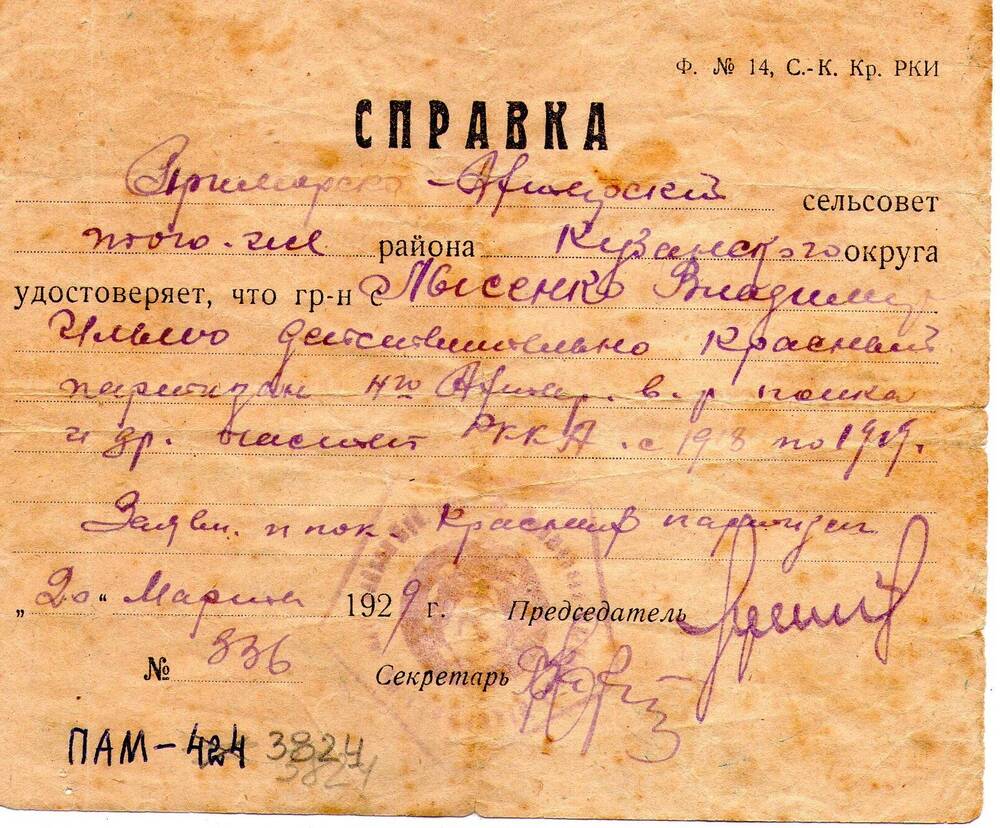 Ф. № 14, С.-К. Кр. РКИ
СПРАВКА
Приморско-Ахтарский сельсовет
того-же района Кубанского округа
удостоверяет, что гр-н с Лысенко Владимир
Ильич действительно Красный
партизан 1го Ахтар. в.р полка
и др. частей РККА. с 1918 по 1919.
Заявл. и пок. Красных партизан
„20“ Марта 1929 г. Председатель
№ 336 Секретарь
ПАМ-424 3824
3824